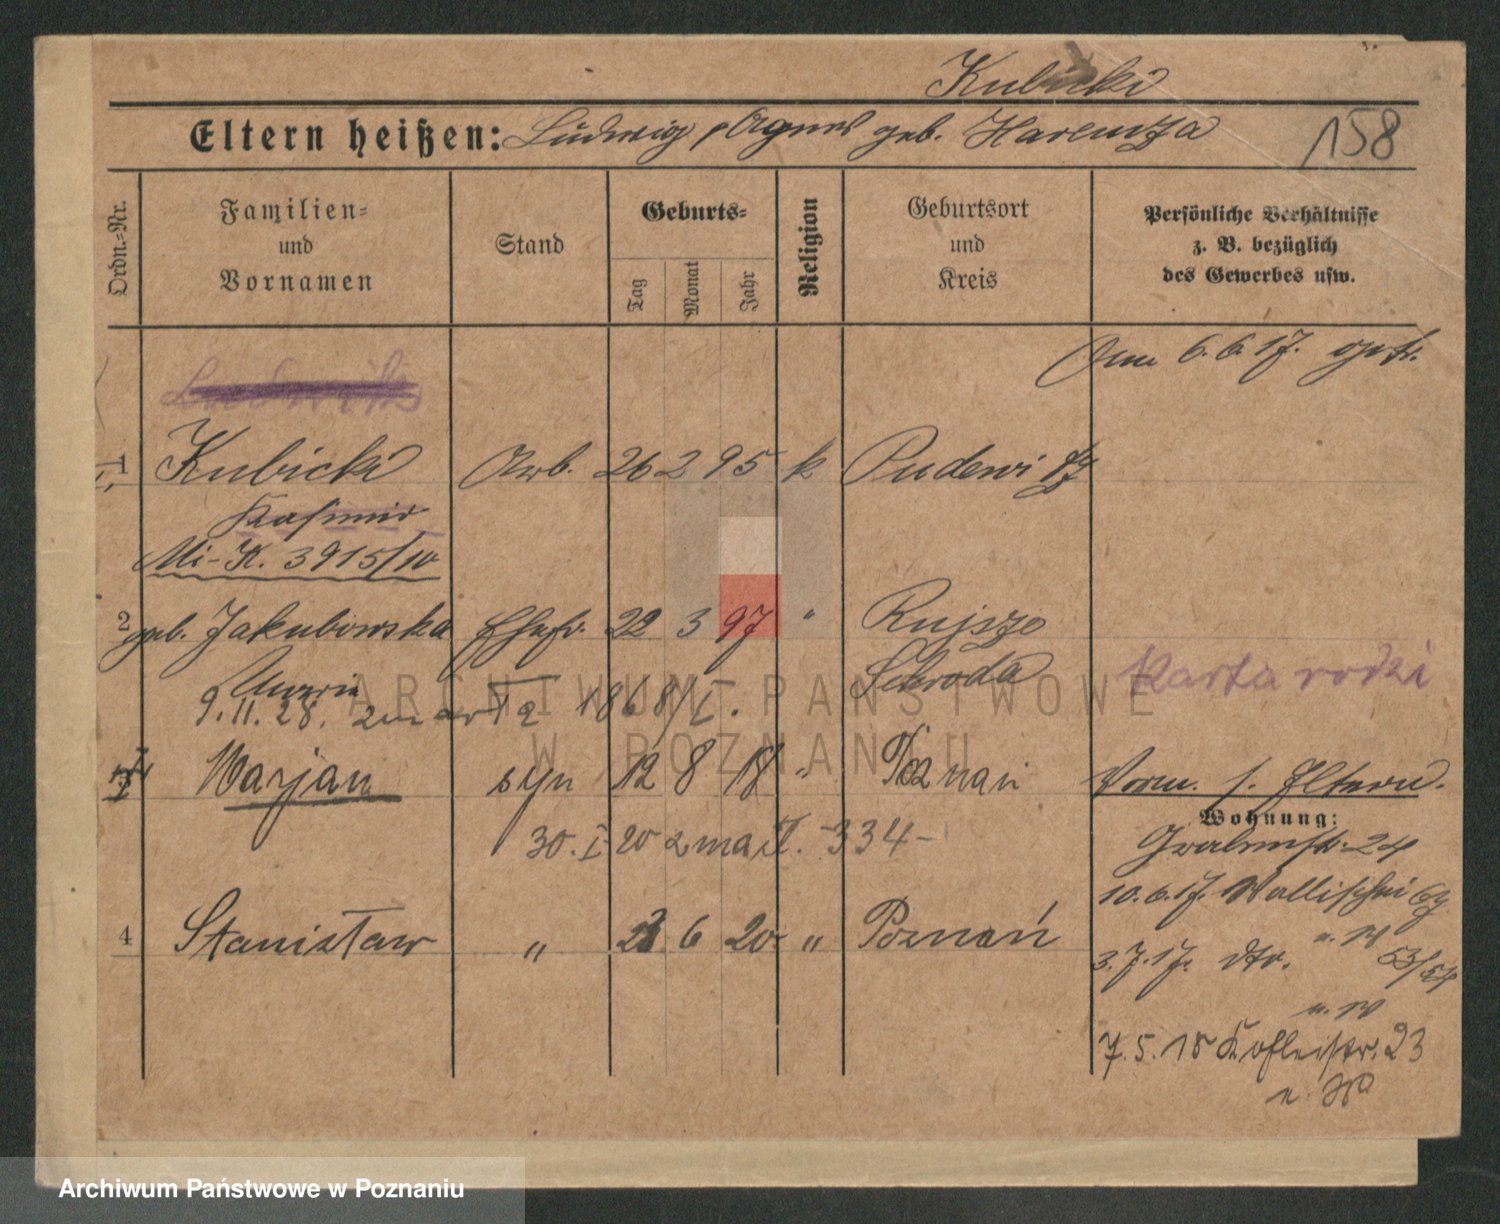 Kubicki
Eltern heißen: Ludwig, Agnes geb. Harenza
158
Ordn.-Nr.
Familien- und Vornamen
Stand
Geburts-
Tag
Monat
Jahr
Religion
Geburtsort und Kreis
Persönliche Verhältnisse z. B. bezüglich des Gewerbes usw.
Am 6.6.17. getr.
1 Kubicki Arb. 26 2 95 k Pudewitz
Kasimir
Mi-K. 3915/10
2 geb. Jakubowska Ehefr. 22 3 97 " Rujsze
Schroda
Karta rodzi
9.11.28. zmarła 1868/I.
Marjan syn 12 8 18 " Poznań
Vorm. s. Eltern.
Wohnung:
30.I 20 zmarł. 334-
Grabenstr. 24
10.6.17. Wallischei
4 Stanisław " 6 20 " Poznań
3.7.17. dto. 53/54
7.5.18 23
ARCHIWUM PAŃSTWOWE
W POZNANIU
Archiwum Państwowe w Poznaniu